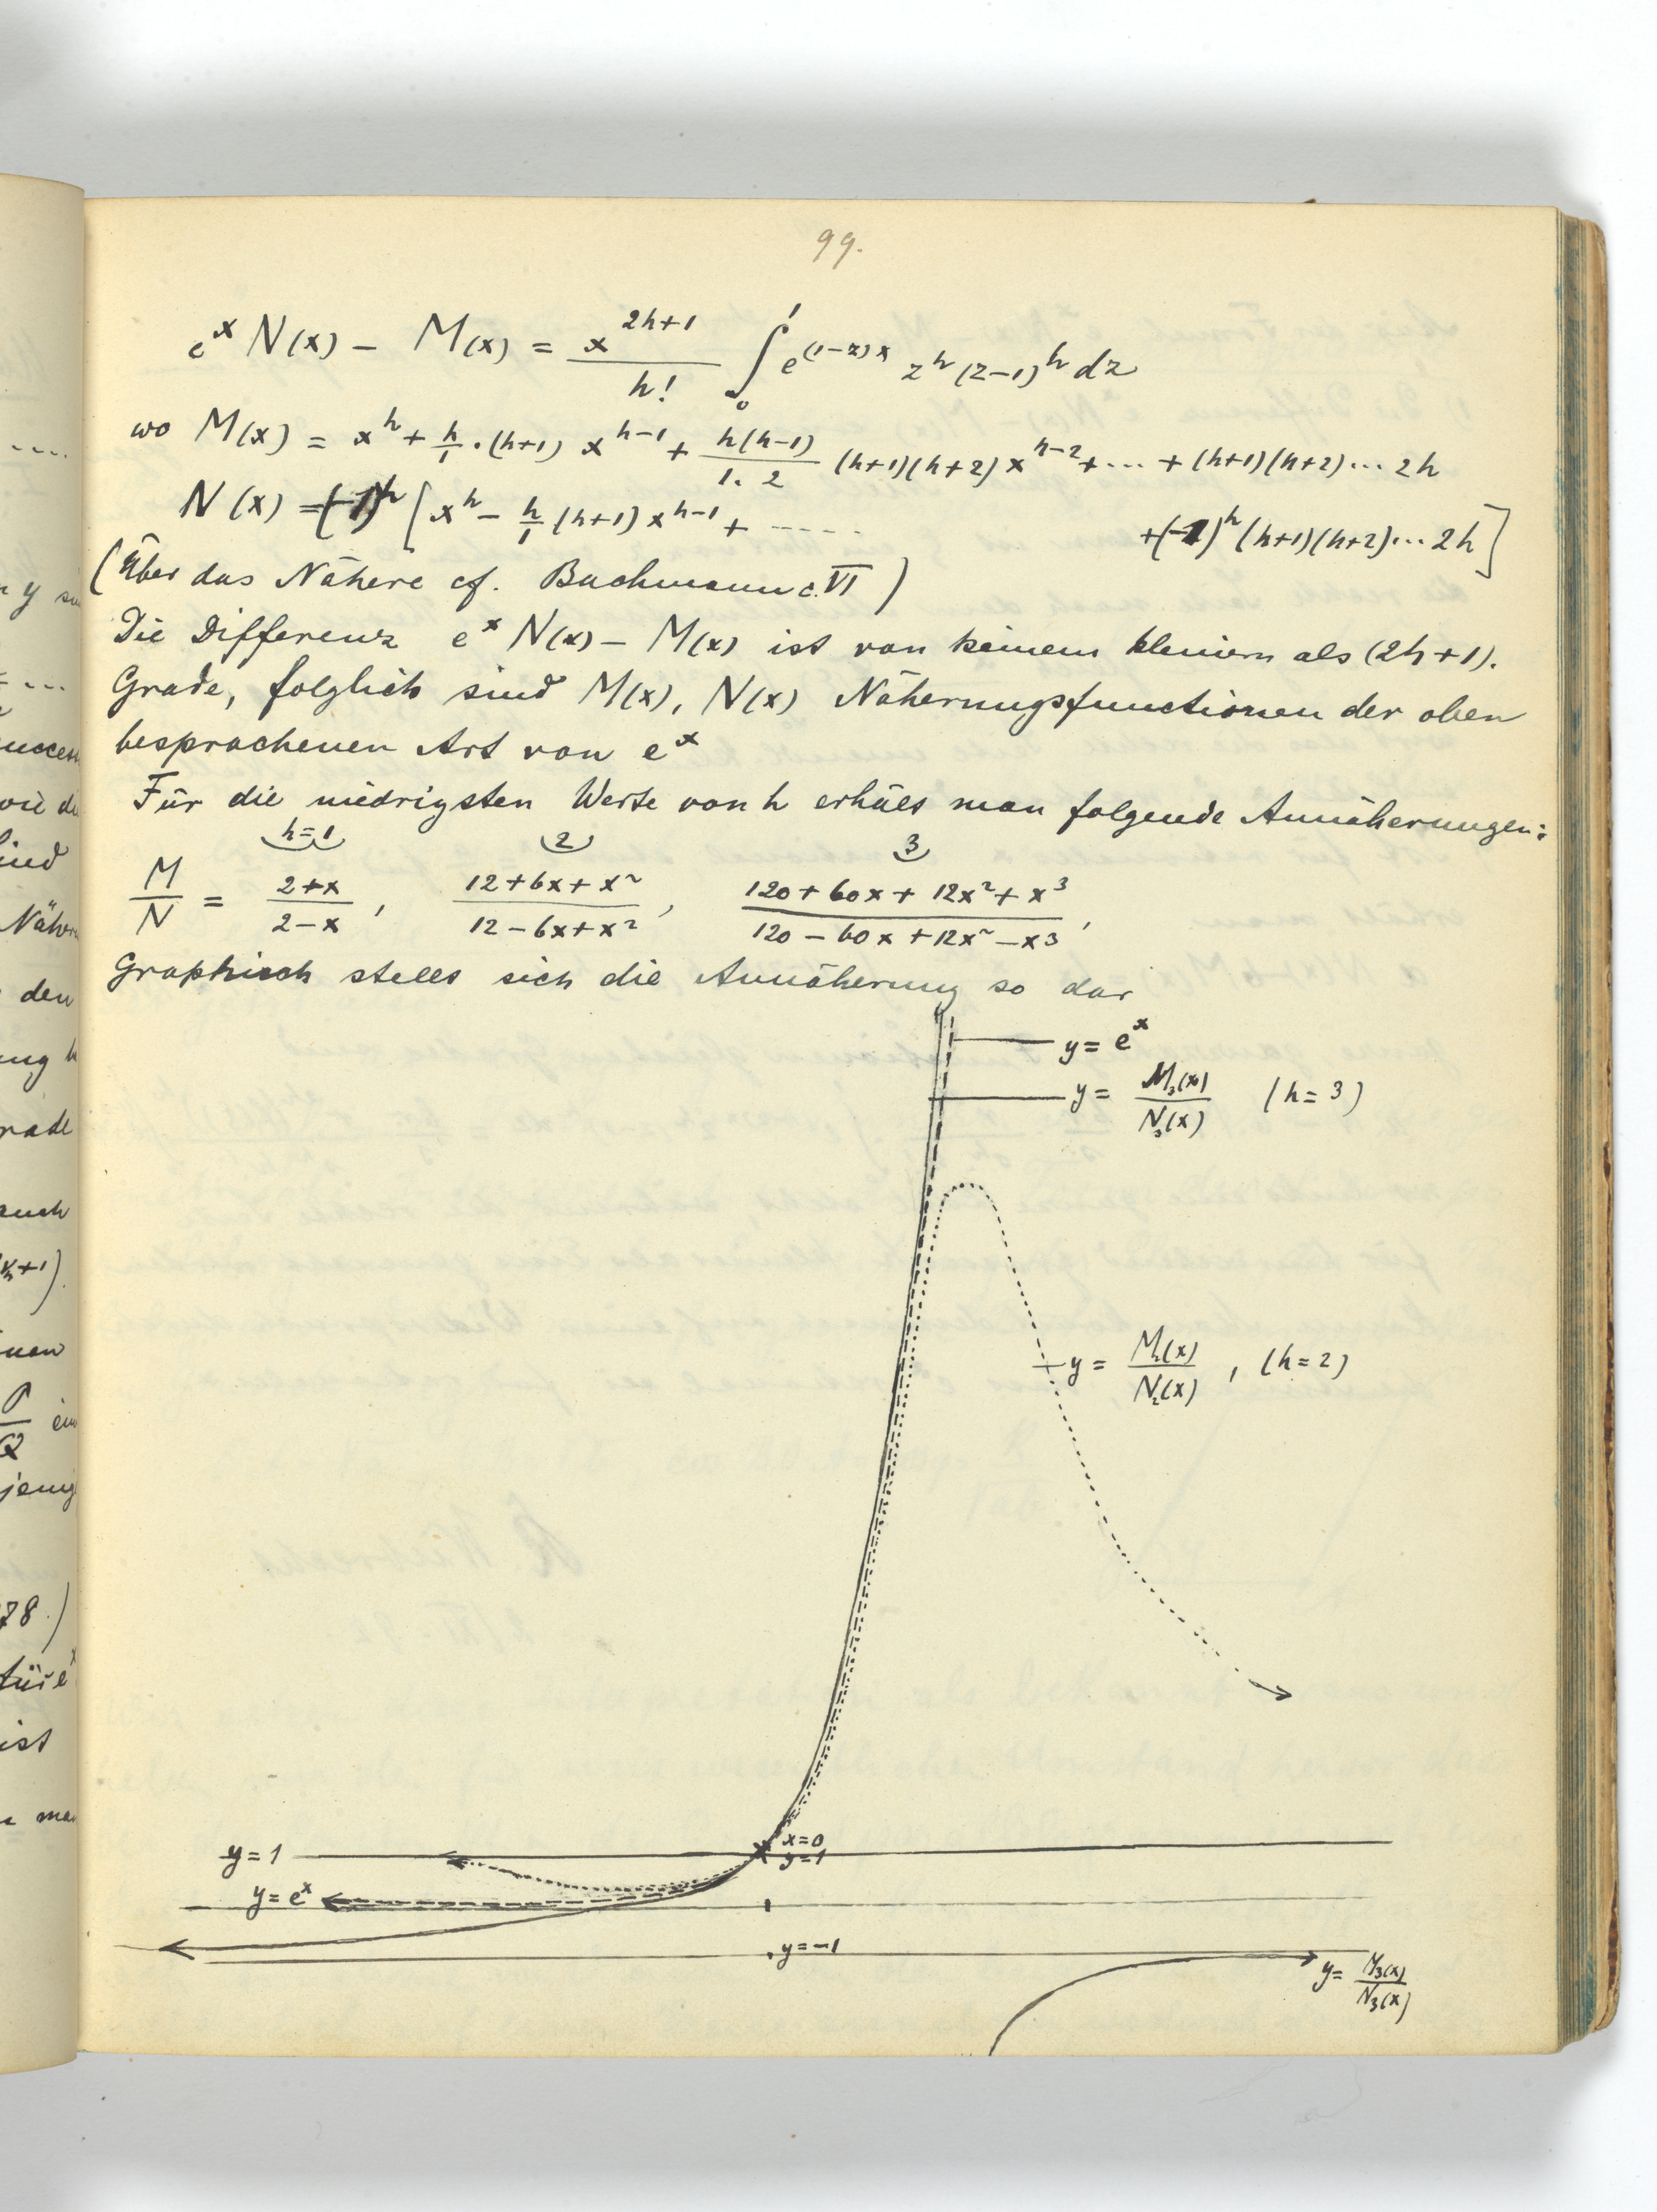 99.
e^x N(x) – M(x) = x^{2h+1}/h! ∫_0^1 e^{(1-z)x} z^h (z-1)^h dz
wo M(x) = x^h + h/1 · (h+1) x^{h-1} + h(h-1)/1. 2 (h+1)(h+2) x^{h-2} + ... + (h+1)(h+2) ... 2h
N(x) = (-1)^h [x^h – h/1 (h+1) x^{h-1} + ..... + (-1)^h (h+1)(h+2) ... 2h]
(Über das Nähere cf. Bachmann c. VI)
Die Differenz e^x N(x) – M(x) ist von keinem kleinern als (2h+1).
Grade, folglich sind M(x), N(x) Näherungsfunctionen der oben
besprochenen Art von e^x
Für die niedrigsten Werte von h erhält man folgende Annäherungen:
h=1 2 3
M/N = 2+x/2-x , 12+6x+x²/12-6x+x² , 120+60x+12x²+x³/120-60x+12x²-x³ ,
Graphisch stellt sich die Annäherung so dar
y = e^x
y = M₃(x)/N₃(x) (h=3)
y = M₂(x)/N₂(x) , (h=2)
x=0
y=1
y=1
y=e^x
y=-1
y= M₃(x)/N₃(x)
....
n y
....
den
rade
auch
+1)
P/Q
78.)
für e^x
ist